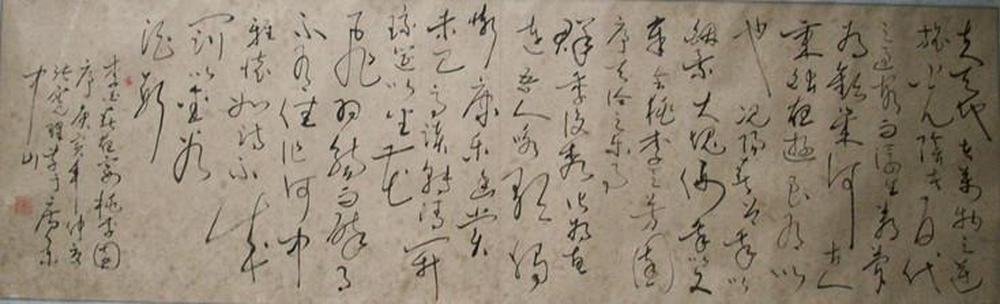 夫天地者萬物之逆
旅也光陰者百代
之過客而浮生若夢
為歡幾何古人
秉燭夜遊良有以
也況陽春召我以
烟景大塊假我以文
章會桃李之芳園
序天倫之樂事
群季俊秀皆為惠
連吾人詠歌獨
慚康樂幽賞
未已高談轉清開
瓊筵以坐花
飛羽觴而醉月
不有佳作何申
雅懷如詩不成
罰以金谷
酒數
李白春夜宴桃李園
序庚寅年仲
草于廣東
中山